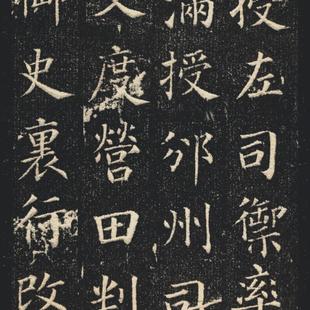 授左司禦率
滿授邠州司
支度營田判
御史裏行改